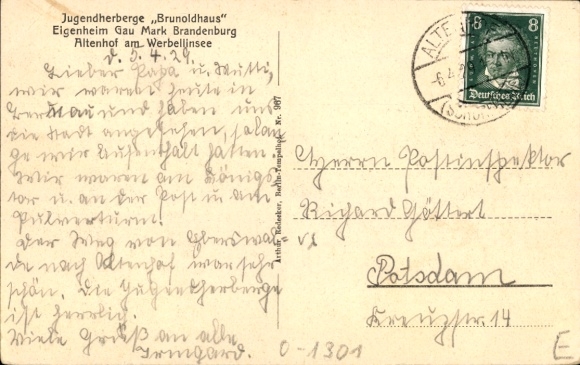 Jugendherberge „Brunoldhaus"
Eigenheim Gau Mark Brandenburg
Altenhof am Werbellinsee
d. 5.4.29.
Lieber Papa u. Mutti,
wir waren heute in
Bernau und haben uns
die Stadt angesehen, solan
ge wir Aufenthalt hatten.
Wir waren am Königs
tor u. an der Post u. am
Pulverturm.
Der Weg von Eberswal-
de nach Altenhof war sehr
schön. Die Jugendherberge
ist herrlich.
Viele Grüße an alle
Irmgard.
Arthur Redecker, Berlin-Tempelhof Nr. 987
8 8
Deutsches Reich
ALTE
-6.4.29
Herrn Postinspektor
Richard Göttert
Potsdam
Kreuzstr. 14
0-1301
E